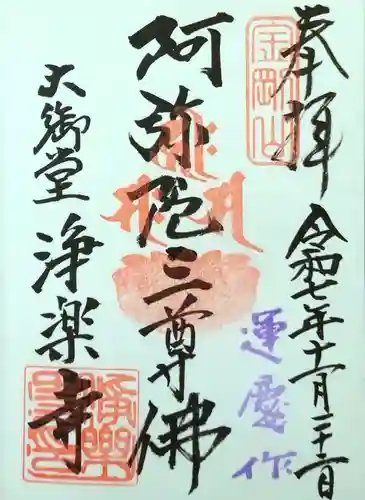 奉拝
金剛山
令和七年十一月二十一日
運慶作
阿弥陀三尊佛
大御堂 浄楽寺